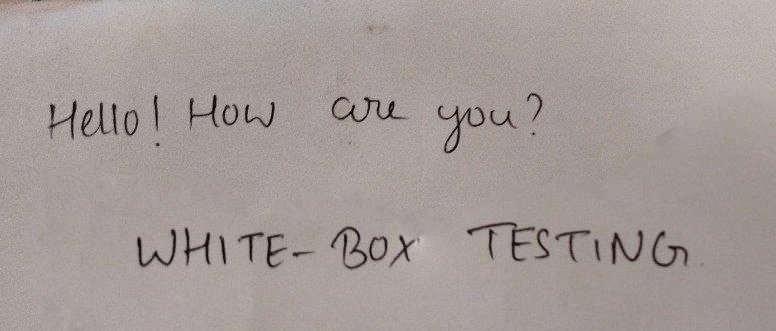 Hello! How are you?
WHITE-BOX TESTING